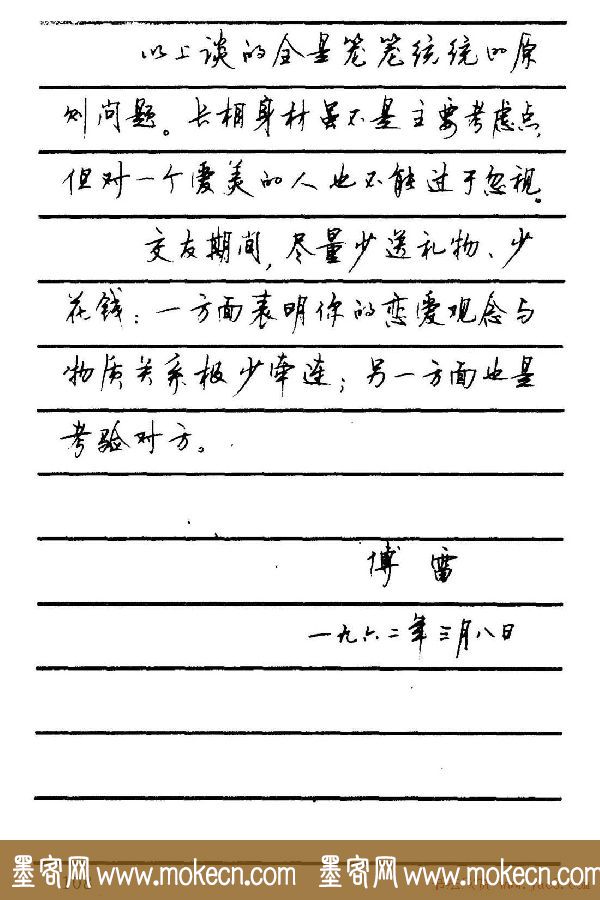 以上谈的全是笼笼统统的原
则问题。长相身材虽不是主要考虑点,
但对一个爱美的人也不能过于忽视。
交友期间,尽量少送礼物、少
花钱：一方面表明你的恋爱观念与
物质关系极少牵连；另一方面也是
考验对方。
傅雷
一九六二年三月八日
墨客网 www.mokecn.com 墨客网 www.mokecn.com